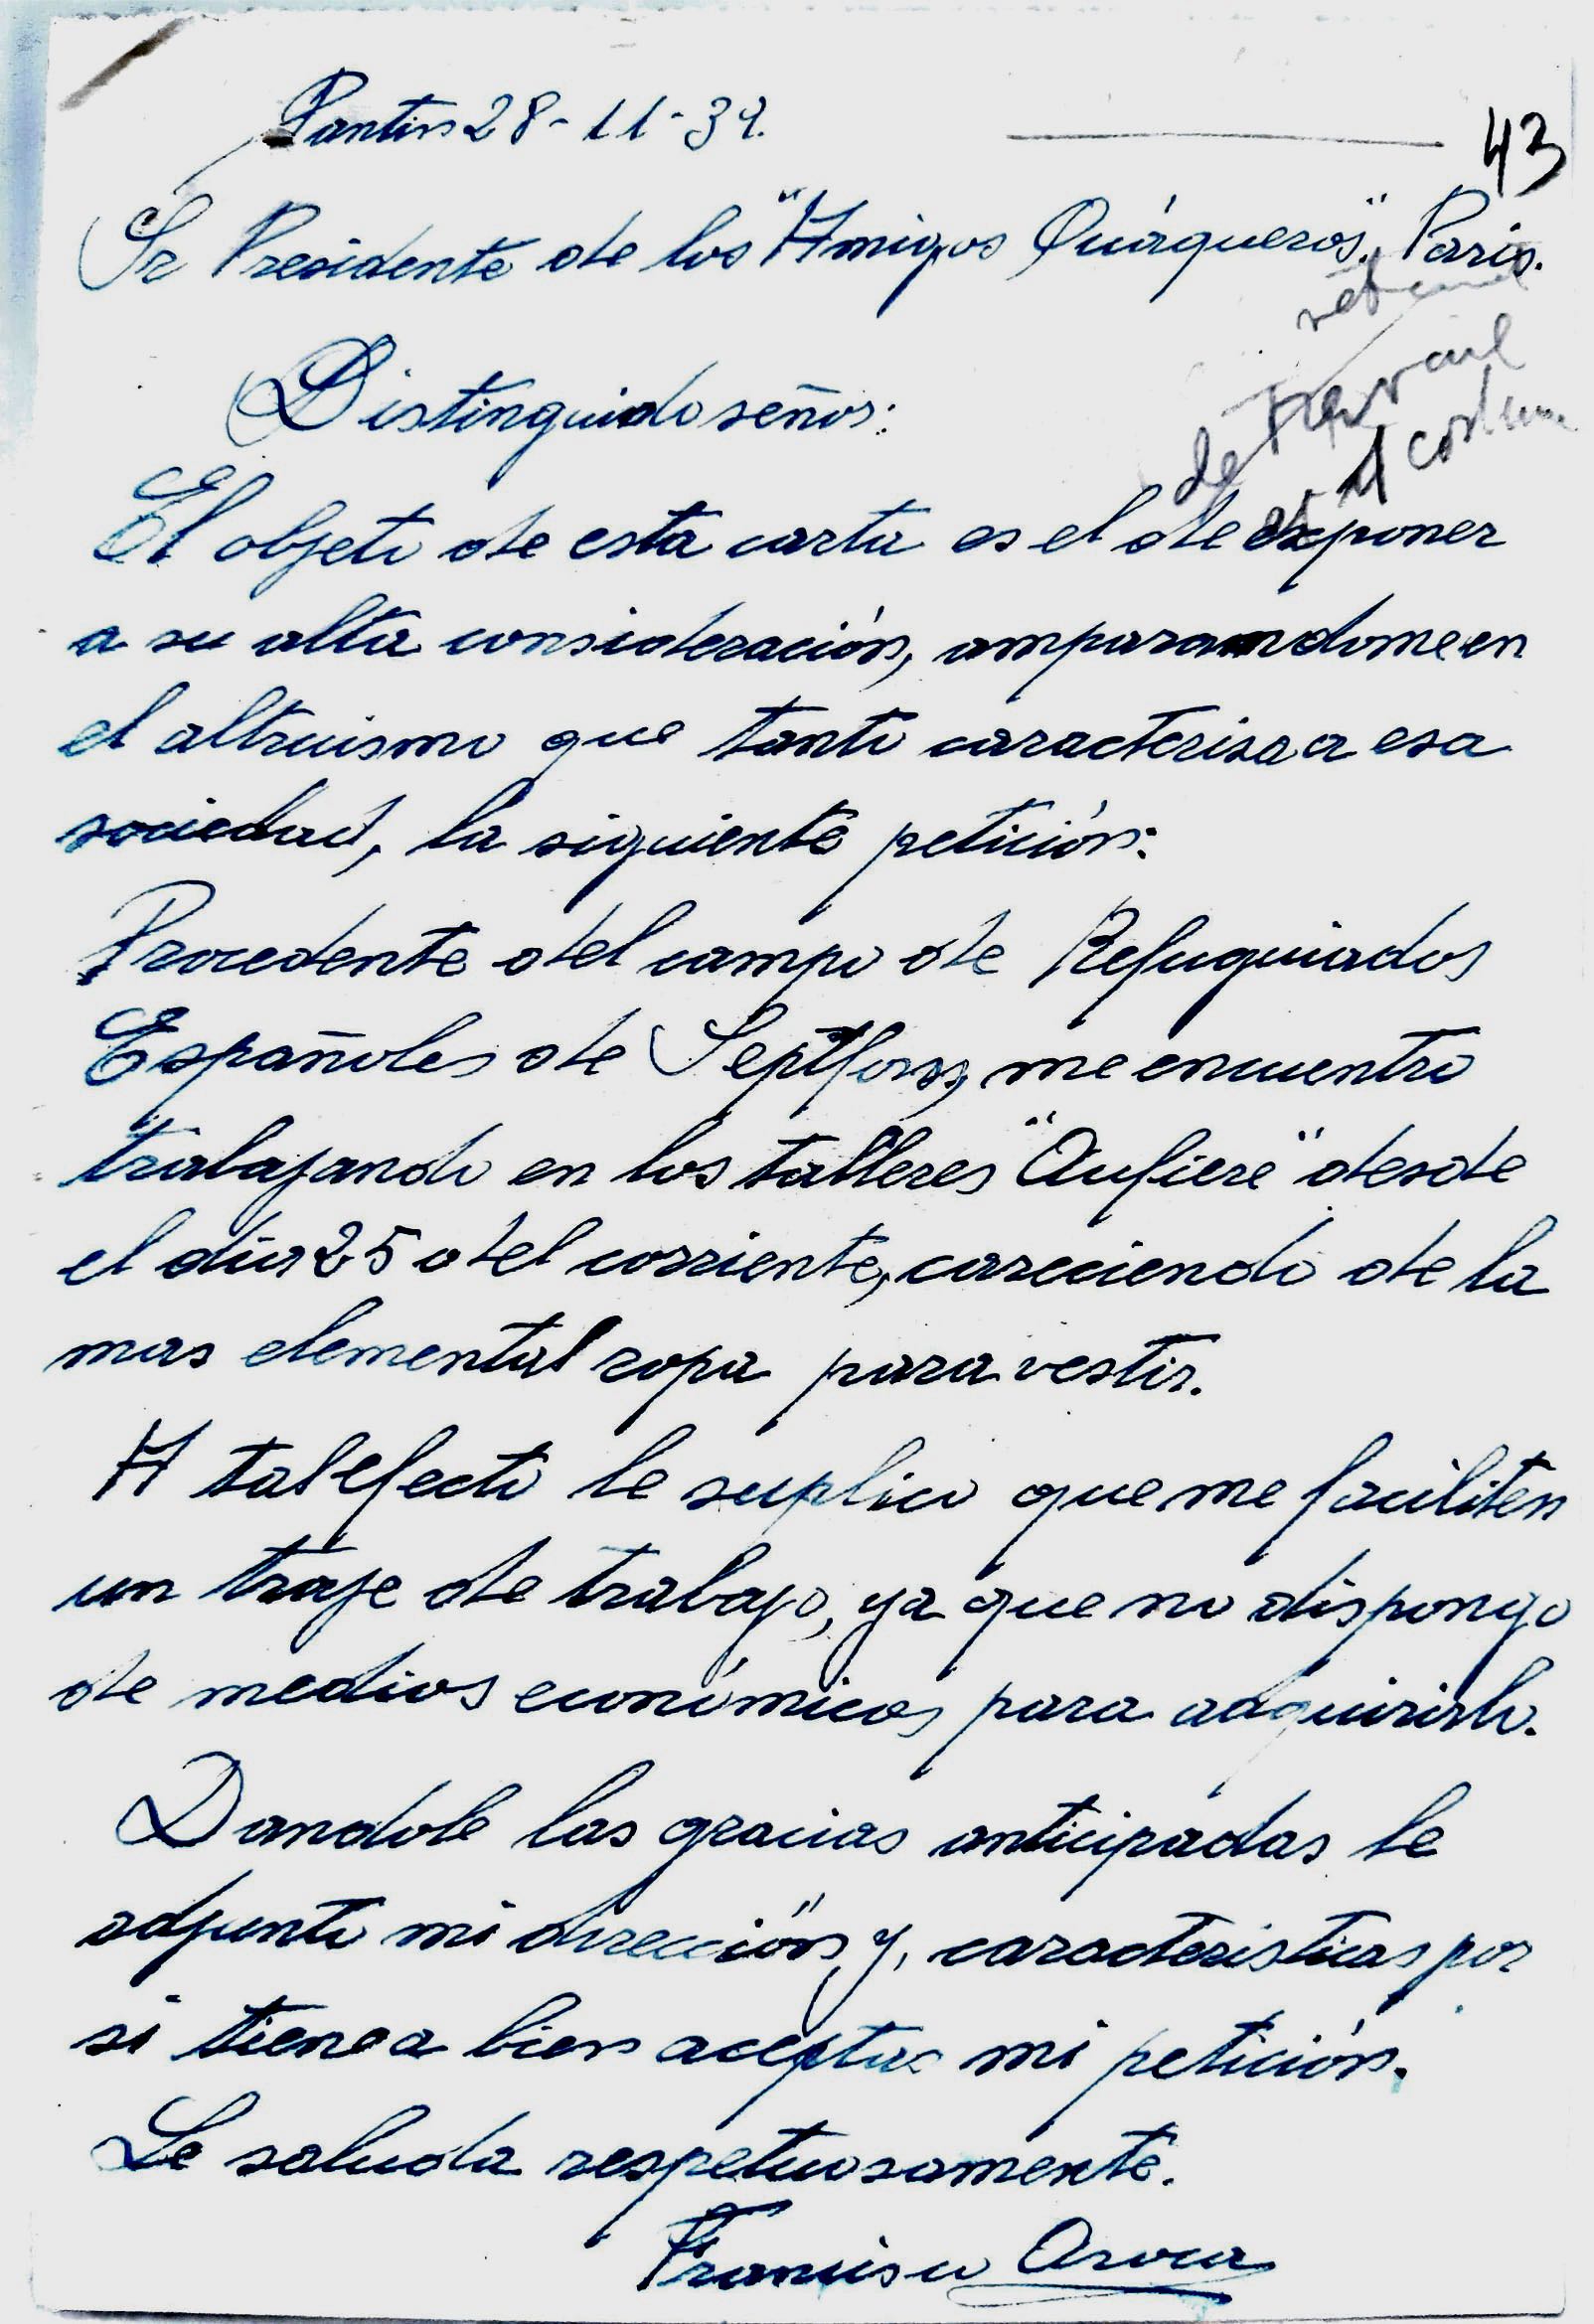 Pantin 28-11-39.
43
Sr Presidente de los "Amigos Quáqueros". Paris.
Distinguido señor:
de travail
et 1 costume
El objeto de esta carta es el de exponer
a su alta consideración, amparandome en
el altruismo que tanto caracterisa a esa
sociedad, la siguiente petición:
Procedente del campo de Refuguiados
Españoles de Septfons, me encuentro
trabajando en los talleres "Aufiere" desde
el dia 25 del corriente, careciendo de la
mas elemental ropa para vestir.
A tal efecto le suplico que me faciliten
un traje de trabajo, ya que no dispongo
de medios económicos para adquirirlo.
Dandole las gracias anticipadas le
adjunto mi dirección y, caracteristicas por
si tiene a bien aceptar mi petición.
Le saluda respetuosamente.
Francisco Aroca